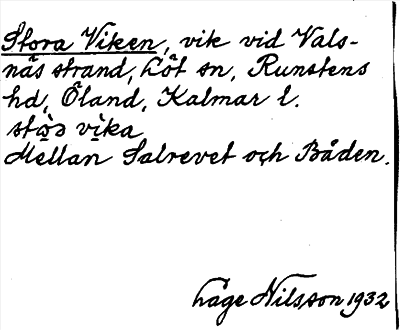 Stora Viken, vik vid Vals-
näs strand, Löt sn, Runstens
hd, Öland, Kalmar l.
vìka
Mellan Salrevet och Båden.
Åge Nilsson 1932